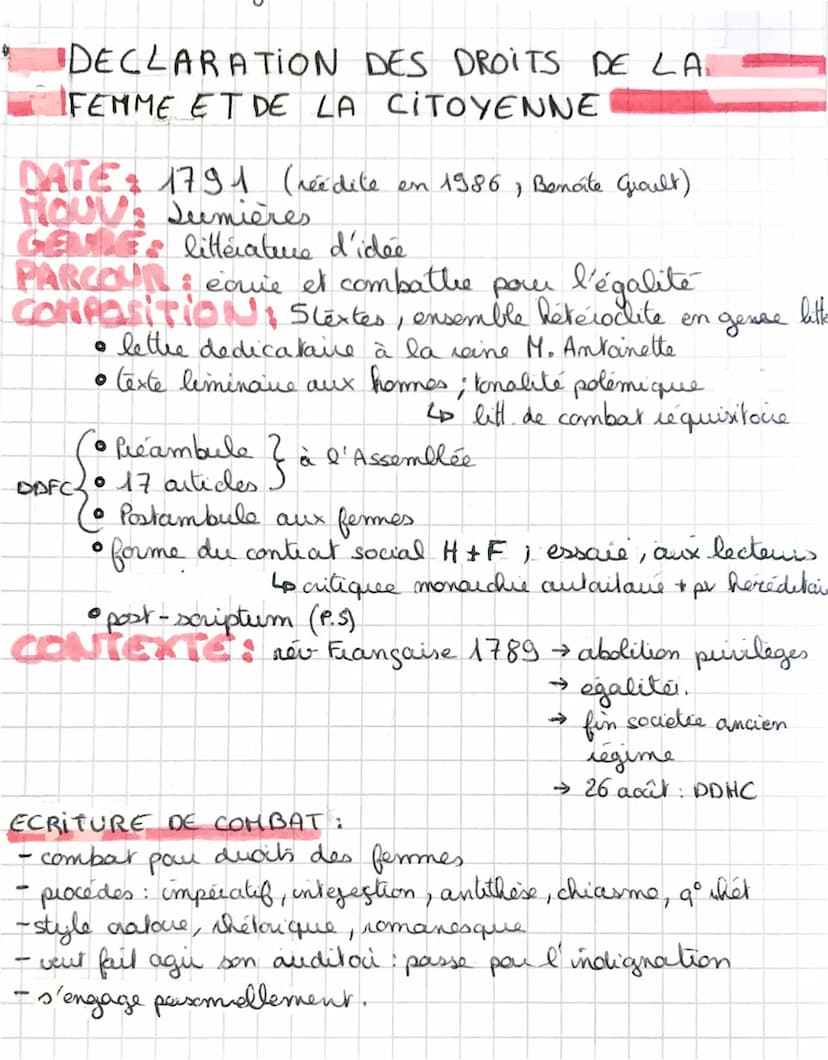 DECLARATION DES DROITS DE LA
FEMME ET DE LA CITOYENNE
DATE : 1791 (réédite en 1986, Benoîte Groult)
MOUV : Lumières
GENRE : littérature d'idée
PARCOUR : écrire et combattre pour l'égalité
COMPOSITION : 5 textes, ensemble hétéroclite en genre litt
• lettre dedicataire à la reine M. Antoinette
• texte liminaire aux hommes ; tonalité polémique
↳ litt. de combat réquisitoire
• Préambule } à l'Assemblée
DDFC { • 17 articles
• Postambule aux femmes
• forme du contrat social H + F ; essaie, aux lecteurs
↳ critiquee monarchie autaitaire + pv hérédetair
• post-scriptum (P.S)
CONTEXTE : rév Française 1789 → abolition privilèges
→ égalités.
→ fin societée ancien
régime
→ 26 août : DDHC
ECRITURE DE COMBAT :
- combat pour droits des femmes
- procédes : impératif, interjection, antithèse, chiasme, q° rhét
- style oratoire, rhétorique, romanesque
- veut fait agir son auditoir : passe par l'indignation
- s'engage personnellement.